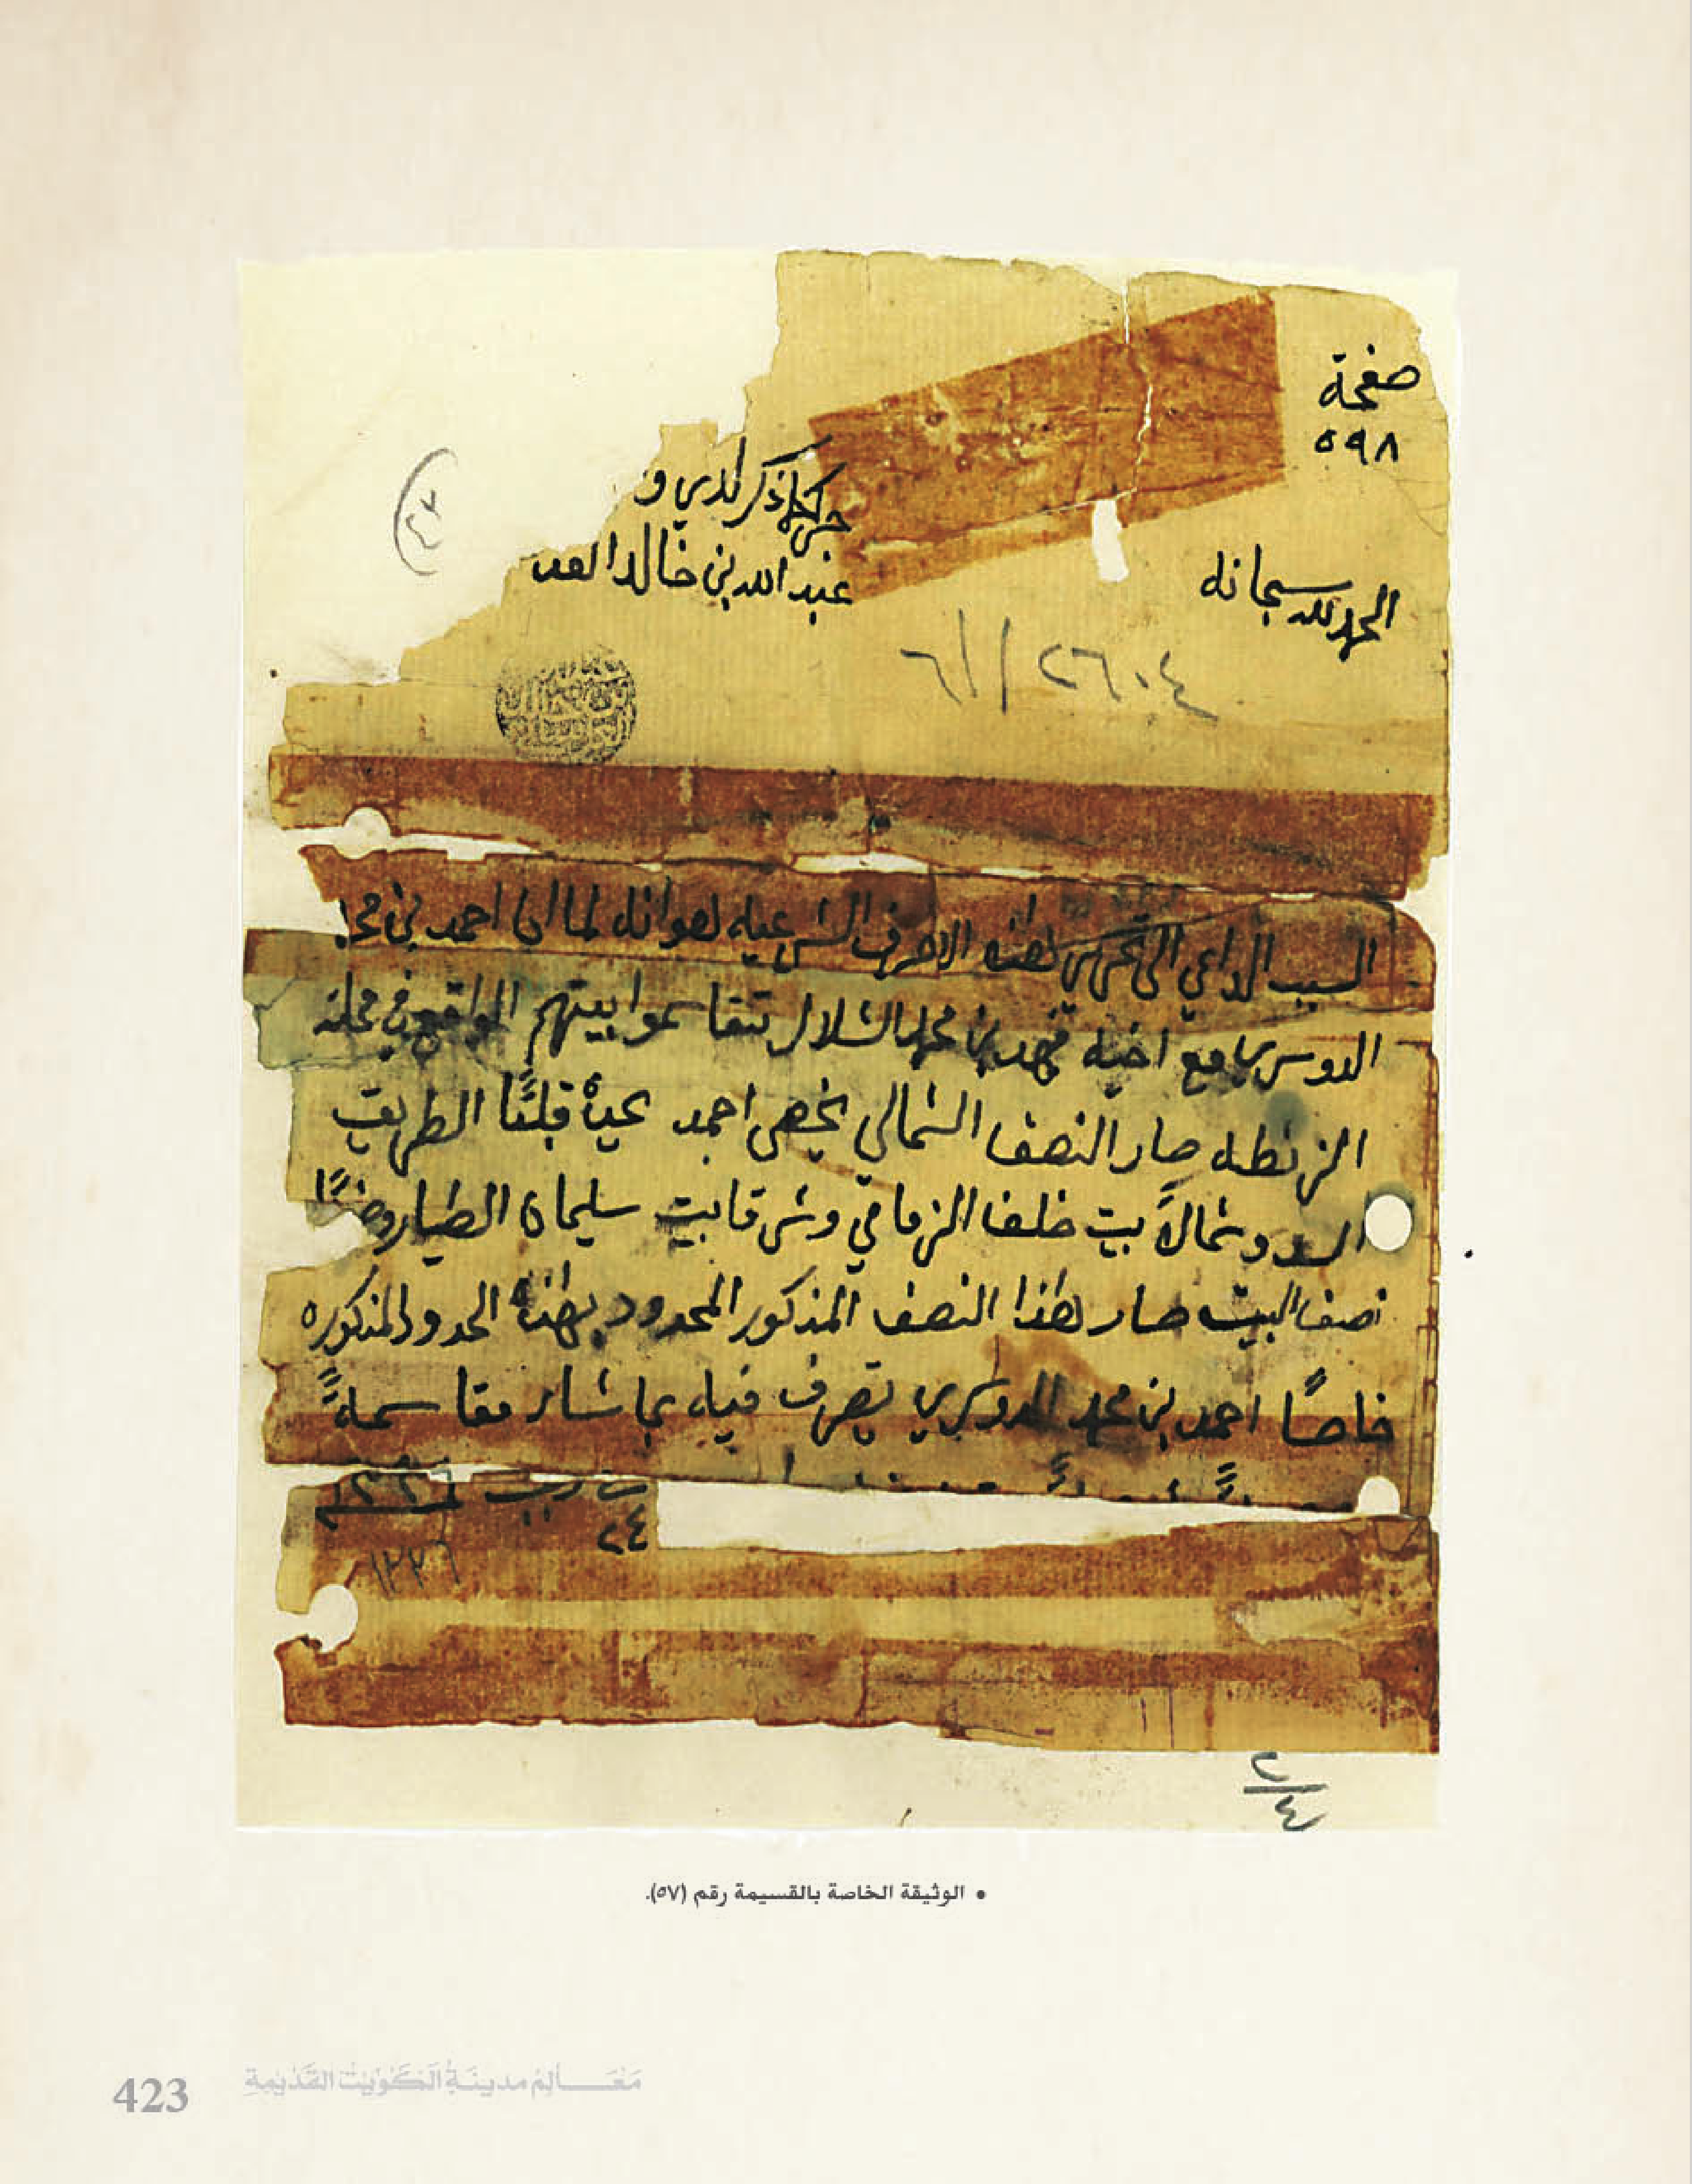 صفحة
٥٩٨
جرى كما ذكر لدي و
عبد الله بن خالد العد
الحمد لله سبحانه
٢٦٠٤
السبب الداعي الى تحرير هذه الاحرف الشرعيه هو انه لما ان احمد بن محمد
الدوسري مع اخيه فهد بن محمد الشلال تقاسموا بيتهم الواقع في محلة
الزنطه صار النصف الشمالي يخص احمد يحده قبلتًا الطريق
السد وشمالاً بيت خلف الزمامي وشرقا بيت سليمان الطيار
نصف البيت صار هذا النصف المذكور المحدود بهذه الحدود المذكوره
خاصًا احمد بن محمد الدوسري تصرف فيه بما شاء مقاسمةً
٢٤
١٣٣٦
٢
٤
• الوثيقة الخاصة بالقسيمة رقم (٥٧).
423 مَعَالِمُ مدينَةِ الكُوَيْت القَدْيمَةِ